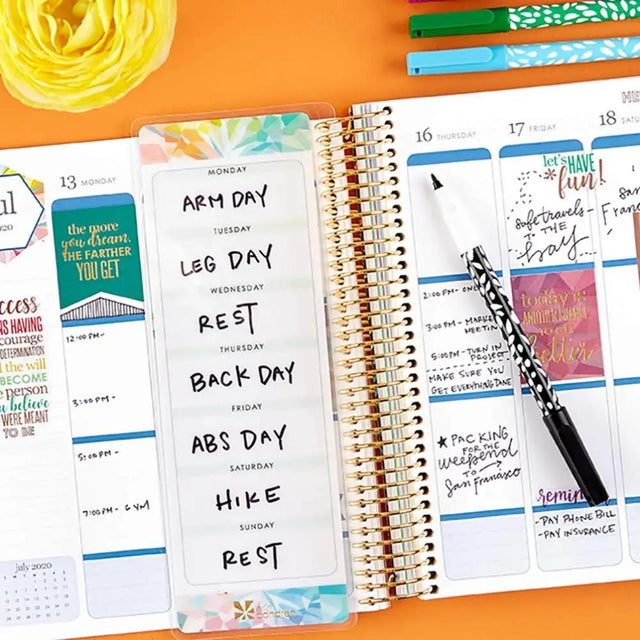 ul
020
ccess
NS HAVING
courage
DETERMINATION
d the will
BECOME
e person
u believe
WERE MEANT
TO BE
july 2020
13 MONDAY
the more
you dream,
THE FARTHER
YOU GET
12:00 PM-
3:00 PM-
5:00 PM-
7:00 PM- GYM
MONDAY
ARM DAY
TUESDAY
LEG DAY
WEDNESDAY
REST
THURSDAY
BACK DAY
FRIDAY
ABS DAY
SATURDAY
HIKE
SUNDAY
REST
16 THURSDAY
2:00 PM-
3:00 PM- MARKE
MEETIN
5:00 PM- TURN IN
PROJECT
MAKE SURE YOU
GET EVERYTHING DONE
★ PACKING
FOR THE
weekend
TO
San Francisco
17 FRIDAY
let's HAVE
*fun!
Safe travels
TO THE
bay
today is
ANOTHER CHANCE
to do
better
remin
-PAY PHONE BILL
-PAY INSURANCE
18 SATU
San
Franc